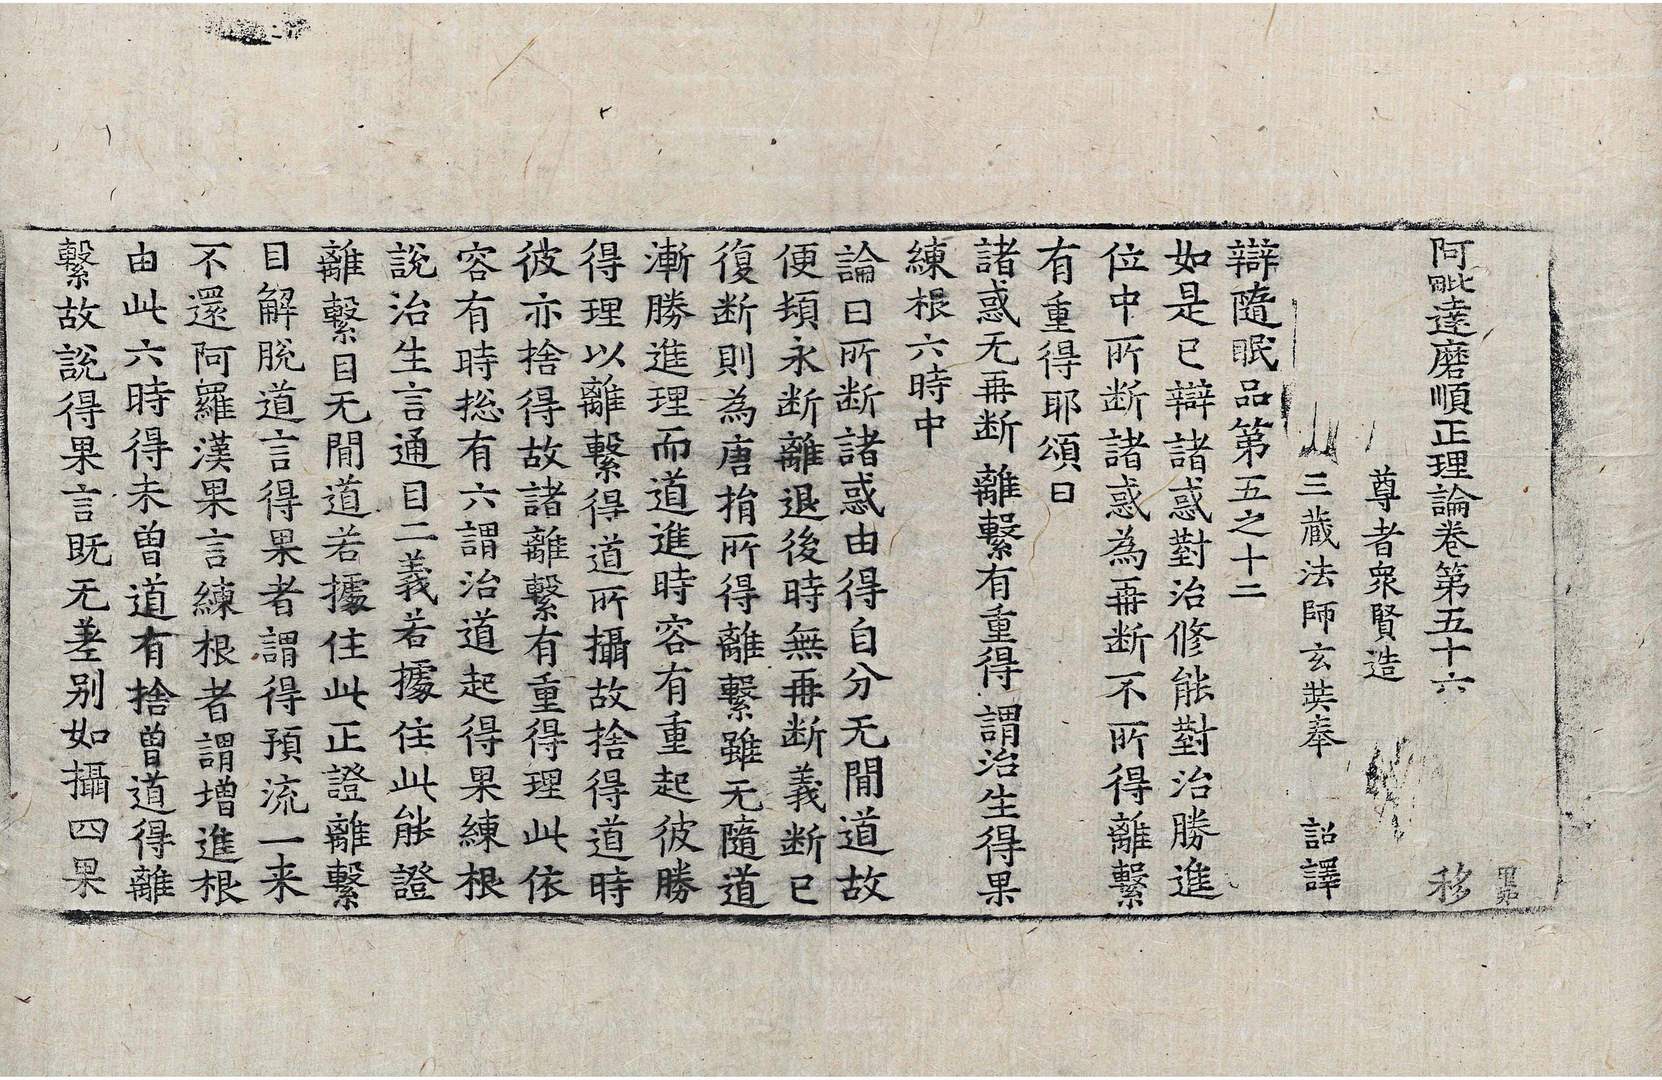 阿毗達磨順正理論卷第五十六 移
尊者衆賢造
三藏法師玄奘奉 詔譯
辯隨眠品第五之十二
如是已辯諸惑對治修能對治勝進
位中所断諸惑為再断不所得離繫
有重得耶頌曰
諸惑无再断 離繫有重得 謂治生得果
練根六時中
論曰所断諸惑由得自分无閒道故
便頓永断離退後時無再断義断已
復断則為唐捐所得離繫雖无隨道
漸勝進理而道進時容有重起彼勝
得理以離繫得道所攝故捨得道時
彼亦捨得故諸離繫有重得理此依
容有時総有六謂治道起得果練根
說治生言通目二義若據住此能證
離繫目无閒道若據住此正證離繫
目解脫道言得果者謂得預流一来
不還阿羅漢果言練根者謂增進根
由此六時得未曾道有捨曾道得離
繫故說得果言既无差别如攝四果